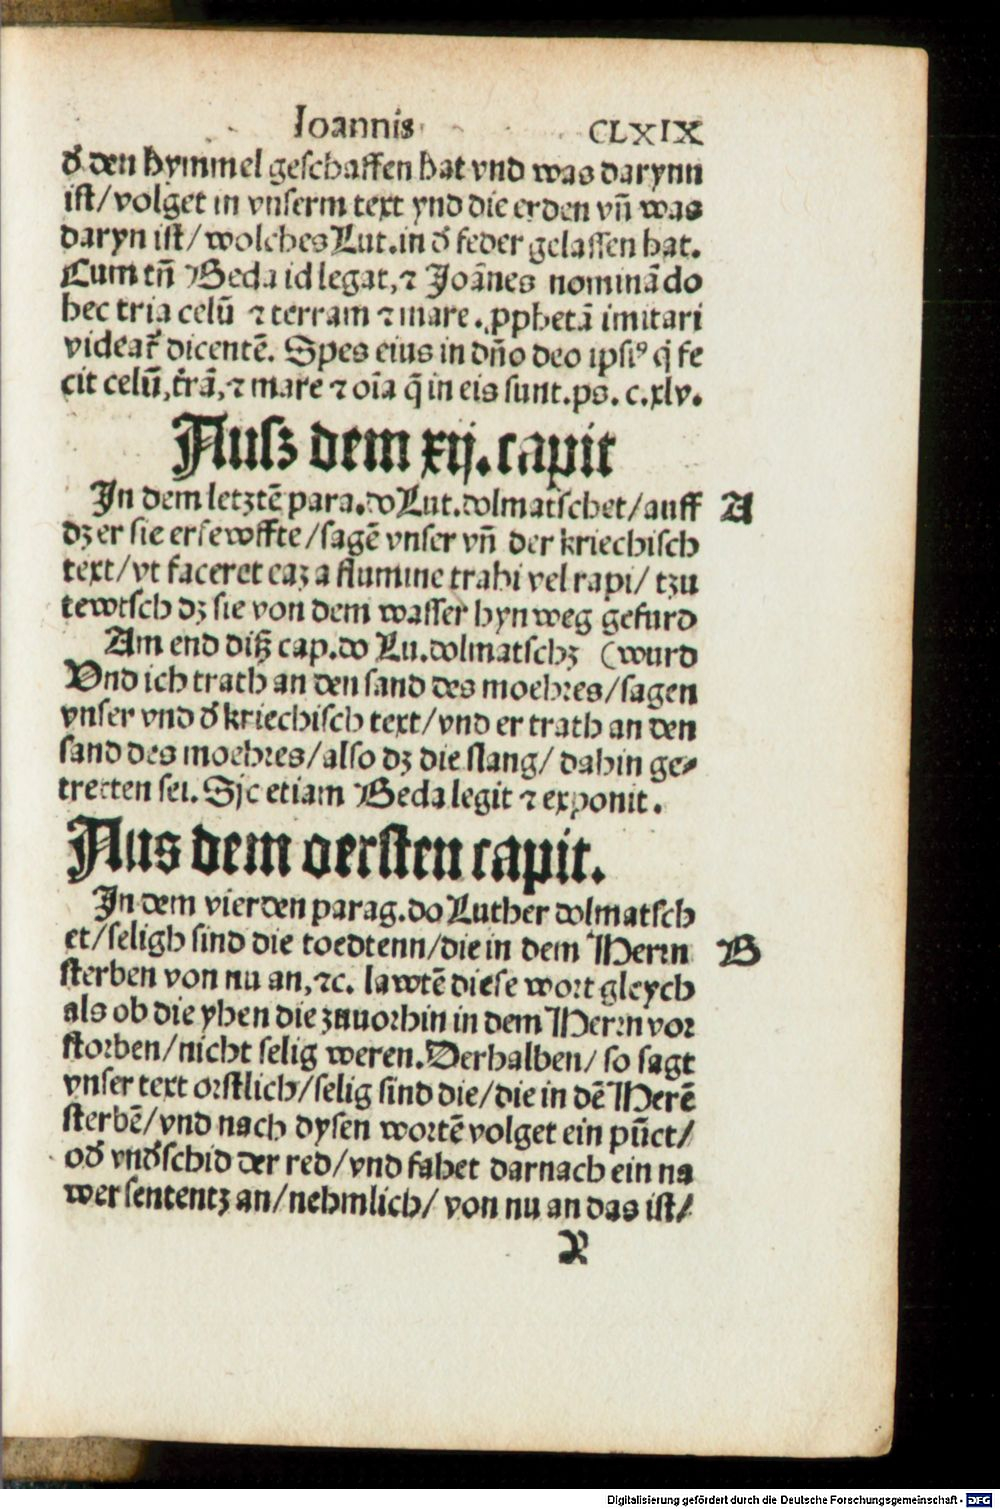 Ioannis CLXIX
d̕ den hymmel geschaffen hat vnd was darynn
ist/volget in vnserm text ynd die erden vñ was
daryn ist/wolches Lut.in d̕ feder gelassen hat.
Cum tñ Beda id legat,⁊ Joānes nominādo
hec tria celū ⁊ terram ⁊ mare. ꝓphetā imitari
videaṫ dicentē. Spes eius in dño deo ipsiꝰ q̇ fe
cit celū,t̃rā,⁊ mare ⁊ oīa q̄ in eis sunt.ps. c.xlv.
Ausz dem xij.capit
In dem letztē para.do Lut.dolmatschet/auff A
dz er sie ersewffte/sagē vnser vñ der kriechisch
text/vt faceret eaz a flumine trahi vel rapi/ tzu
tewtsch dz sie von dem wasser hyn weg gefurd
Am end ditz cap.do Lu.dolmatschz (wurd
Vnd ich trath an den sand des moehres/sagen
vnser vnd d̕ kriechisch text/vnd er trath an den
sand des moehres/also dz die slang/ dahin ge⸗
tretten sei. Sic etiam Beda legit ⁊ exponit.
Aus dem dersten capit.
In dem vierden parag.do Luther dolmatsch
et/seligh sind die toedtenn/die in dem Herrn B
sterben von nu an,⁊c. lawtē diese wort gleych
als ob die yhen die zuuorhin in dem Herrn vor
storben/nicht selig weren.Derhalben/ so sagt
vnser text orstlich/selig sind die/die in dē Herē
sterbē/vnd nach dysen wortē volget ein pūct/
od̕ vnd̕schid der red/vnd fahet darnach ein na
wer sententz an/nehmlich/ von nu an das ist/
Y
Digitalisierung gefördert durch die Deutsche Forschungsgemeinschaft - DFG